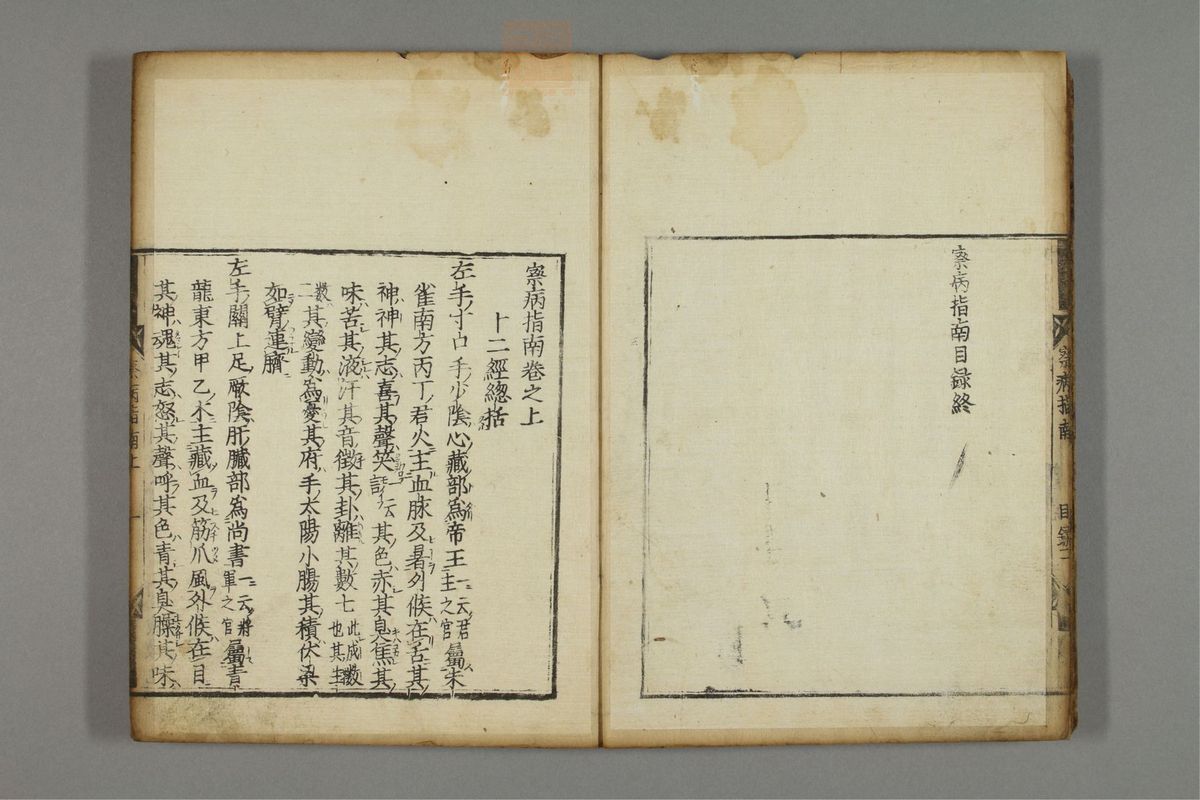 察病指南目録終
察病指南 目録二
察病指南卷之上
十二經緫括
左手寸口手少陰心藏部為帝王一云君主之官屬朱
雀南方丙丁君火主血脉及暑外候在舌其
神神其志喜其聲笑一云言其色赤其臭焦其
味苦其液汗其音徵其卦離其數七此成數也其生
數二其變動為憂其府手太陽小腸其積伏梁
如臂連臍
左手關上足厥陰肝臟部為尚書一云將軍之官屬青
龍東方甲乙木主藏血及筋爪風外候在目
其神魂其志怒其聲呼其色青其臭臊其味
察病指南上 一